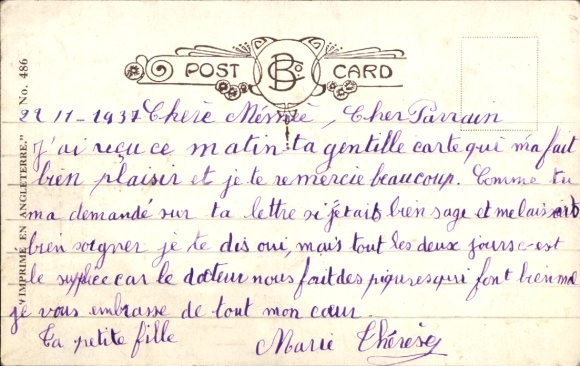 POST CARD
BCo.
"IMPRIMÉ EN ANGLETERRE." No. 486
22-11-1937 Cherè Mémée, Cher Parrain
J'ai reçu ce matin ta gentille carte que m'a fait
bien plaisir et je te remercie beaucoup. Comme tu
ma demandé sur ta lettre si j'etais bien sage et me laissait
bien soigner je te dis oui, mais tout les deux jours c-est
le supplice car le docteur nous fait des piqures qui font bien mal
je vous embrasse de tout mon cœur.
Ta petite fille Marie Thérèse